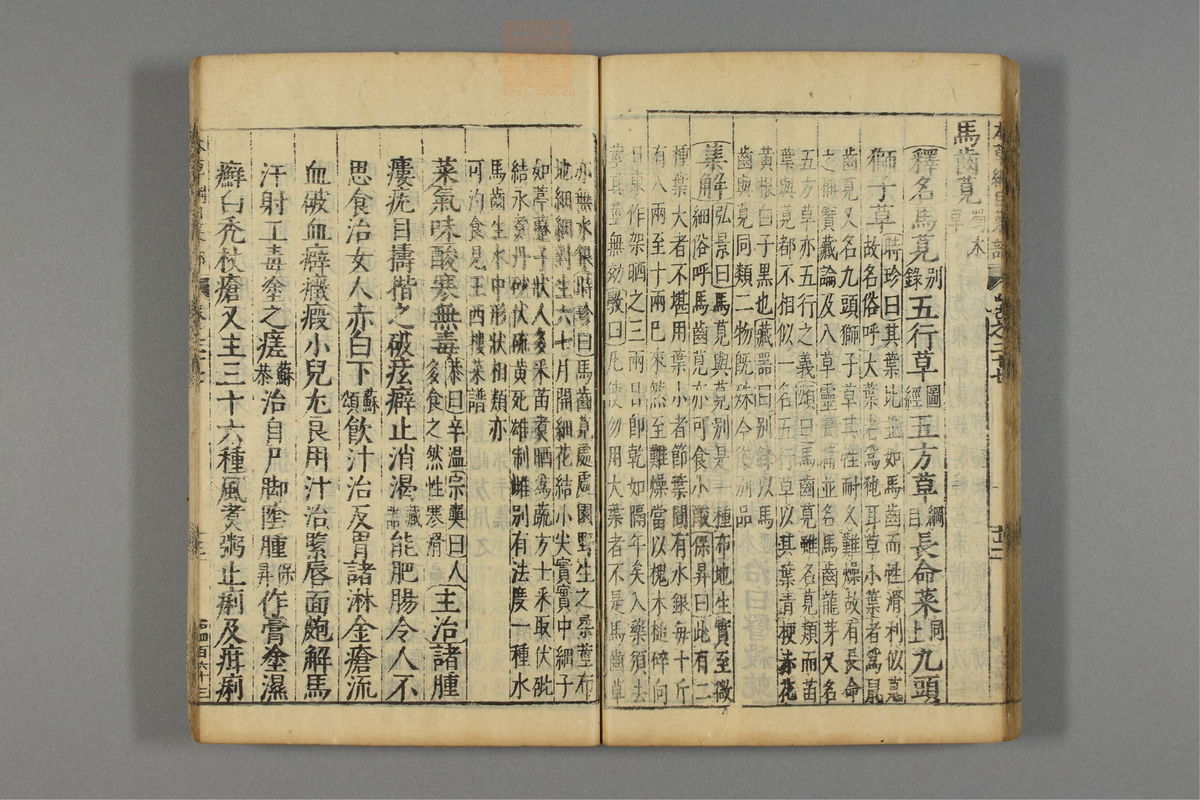 馬齒莧蜀本草
釋名馬莧別錄五行草圖經五方草綱目長命菜同上九頭
獅子草時珍曰其葉比並如馬齒而性滑利似莧故名俗呼大葉者為㹠耳草小葉者為鼠
齒莧又名九頭獅子草其性耐久難燥故有長命
之稱寶藏論及八草靈變篇並名馬齒龍芽又名
五方草亦五行之義頌曰馬齒莧雖名莧類而苗
葉與莧都不相似一名五行草以其葉青梗赤花
黃根白子黑也藏器曰別錄以馬
齒與莧同類二物既殊今從別品
集解弘景曰馬莧與莧別是一種布地生實至微
細俗呼馬齒莧亦可食小酸保昇曰此有二
種葉大者不堪用葉小者節葉間有水銀每十斤
有八兩至十兩已來然至難燥當以槐木槌碎向
日東作架晒之三兩日即乾如隔年矣入藥須去
莖其莖無效斅曰凡使勿用大葉者不是馬齒草
亦無水銀時珍曰馬齒莧處處園野生之柔莖布
地細細對生六七月開細花結小尖實實中細子
如葶藶子狀人多采苗煮晒為蔬方士采取伏砒
結水煮丹砂伏硫黃死雄制雌別有法度一種水
馬齒生水中形狀相類亦
可汋食見王西樓菜譜
菜氣味酸寒無毒恭曰辛溫宗奭曰人多食之然性寒滑主治諸腫
瘻疣目擣揩之破痃癖止消渴藏器能肥腸令人不
思食治女人赤白下蘇頌飲汁治反胃諸淋金瘡流
血破血癖癥瘕小兒尢良用汁治緊唇面皰解馬
汗射工毒塗之瘥蘇恭治自尸脚陰腫保昇作膏塗濕
癬白禿杖瘡又主三十六種風煮粥止痢及疳痢